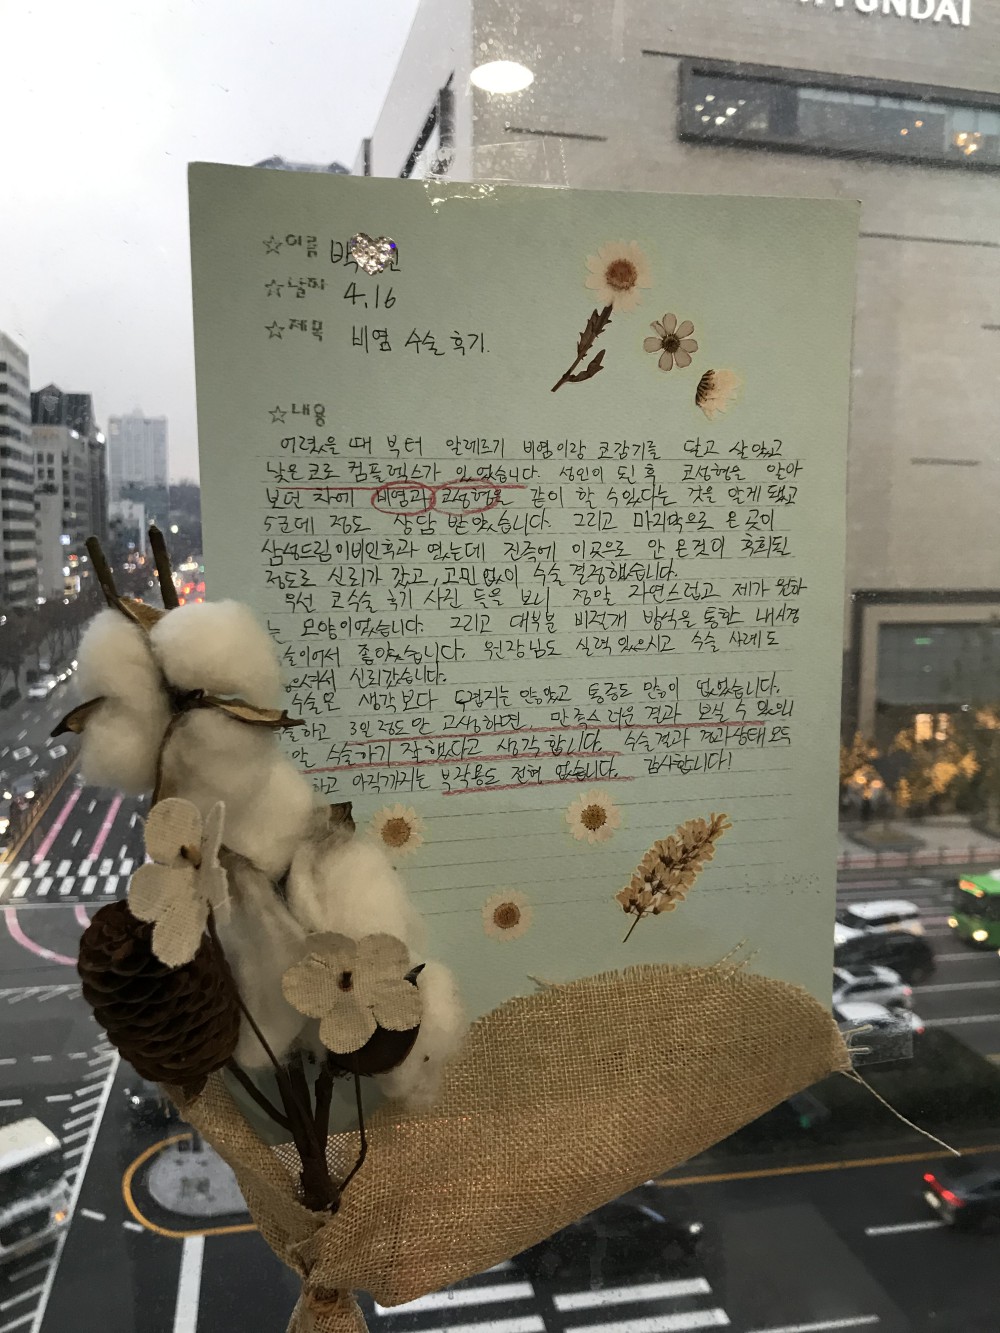 HYUNDAI
☆이름 박
☆날짜 4.16
☆제목 비염 수술 후기.
☆내용
어렸을 때 부터 알레르기 비염이랑 코감기를 달고 살았고
낮은 코로 컴플렉스가 있었습니다. 성인이 된 후 코성형을 알아
보던 차에 비염과 코성형을 같이 할 수 있다는 것을 알게 됐고
5군데 정도 상담 받았습니다. 그리고 마지막으로 온 곳이
삼성드림이비인후과 였는데 진즉에 이곳으로 안 온것이 후회된
정도로 신뢰가 갔고, 고민없이 수술 결정했습니다.
우선 코수술 후기 사진 들을 보니 정말 자연스럽고 제가 원하
는 모양이었습니다. 그리고 대부분 비절개 방식을 통한 내시경
술이어서 좋았습니다. 원장님도 실력 있으시고 수술 사례도
으셔서 신뢰갔습니다.
수술도 생각보다 두렵지는 않았고 통증도 많이 없었습니다.
술하고 3일 정도만 고생하면, 만족스러운 결과 보실 수 있으니
말 수술하기 잘했다고 생각합니다. 수술결과 경과상태 모두
하고 아직까지는 부작용도 전혀 없습니다. 감사합니다!